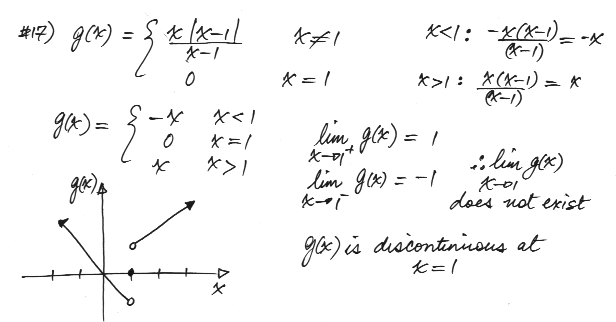 #17) g(x) = { x|x-1| / x-1   x≠1
0   x = 1
x<1: -x(x-1) / (x-1) = -x
x>1: x(x-1) / (x-1) = x
g(x) = { -x   x<1
0   x=1
x   x>1
lim x→1⁺ g(x) = 1
lim x→1⁻ g(x) = -1
∴ lim x→1 g(x)
does not exist
g(x)
x
g(x) is discontinuous at
x=1